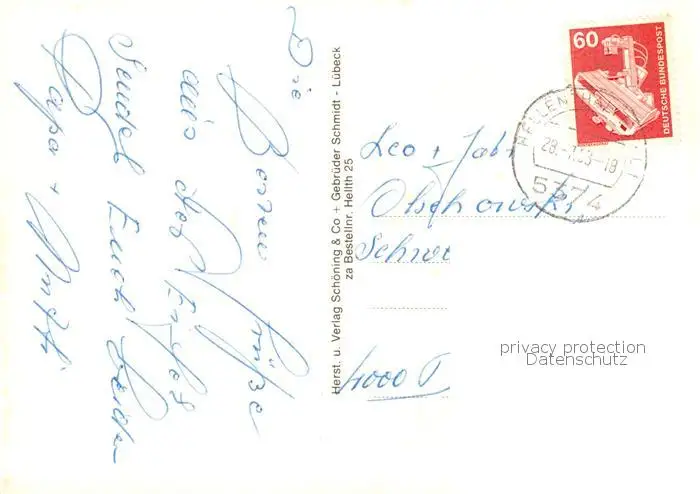 Die
Besten Grüße
aus der Eifel
Sendet Euch beiden
Papa + Mutti
Herst. u. Verlag Schöning & Co + Gebrüder Schmidt - Lübeck
za Bestellnr. Hellth 25
60
DEUTSCHE BUNDESPOST
HELLENTHAL
5374
Leo +
Olschowski
4000
privacy protection
Datenschutz